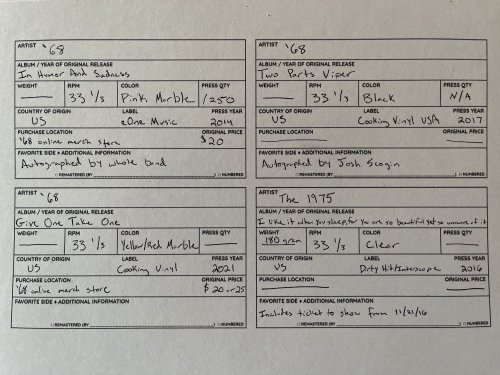 ARTIST '68
ALBUM / YEAR OF ORIGINAL RELEASE
In Humor And Sadness
WEIGHT RPM COLOR PRESS QTY
— 33 1/3 Pink Marble /250
COUNTRY OF ORIGIN LABEL PRESS YEAR
US eOne Music 2014
PURCHASE LOCATION ORIGINAL PRICE
'68 online merch store $20
FAVORITE SIDE + ADDITIONAL INFORMATION
Autographed by whole band
□ REMASTERED (BY ) □ NUMBERED
ARTIST '68
ALBUM / YEAR OF ORIGINAL RELEASE
Two Parts Viper
WEIGHT RPM COLOR PRESS QTY
— 33 1/3 Black N/A
COUNTRY OF ORIGIN LABEL PRESS YEAR
US Cooking Vinyl USA 2017
PURCHASE LOCATION ORIGINAL PRICE
— —
FAVORITE SIDE + ADDITIONAL INFORMATION
Autographed by Josh Scogin
□ REMASTERED (BY ) □ NUMBERED
ARTIST '68
ALBUM / YEAR OF ORIGINAL RELEASE
Give One Take One
WEIGHT RPM COLOR PRESS QTY
— 33 1/3 Yellow/Red Marble —
COUNTRY OF ORIGIN LABEL PRESS YEAR
US Cooking Vinyl 2021
PURCHASE LOCATION ORIGINAL PRICE
'68 online merch store $20 or 25
FAVORITE SIDE + ADDITIONAL INFORMATION
□ REMASTERED (BY ) □ NUMBERED
ARTIST The 1975
ALBUM / YEAR OF ORIGINAL RELEASE
I like it when you sleep, for you are so beautiful yet so unaware of it
WEIGHT RPM COLOR PRESS QTY
180 gram 33 1/3 Clear —
COUNTRY OF ORIGIN LABEL PRESS YEAR
US Dirty Hit/Interscope 2016
PURCHASE LOCATION ORIGINAL PRICE
— —
FAVORITE SIDE + ADDITIONAL INFORMATION
Includes ticket to show from 11/21/16
□ REMASTERED (BY ) □ NUMBERED